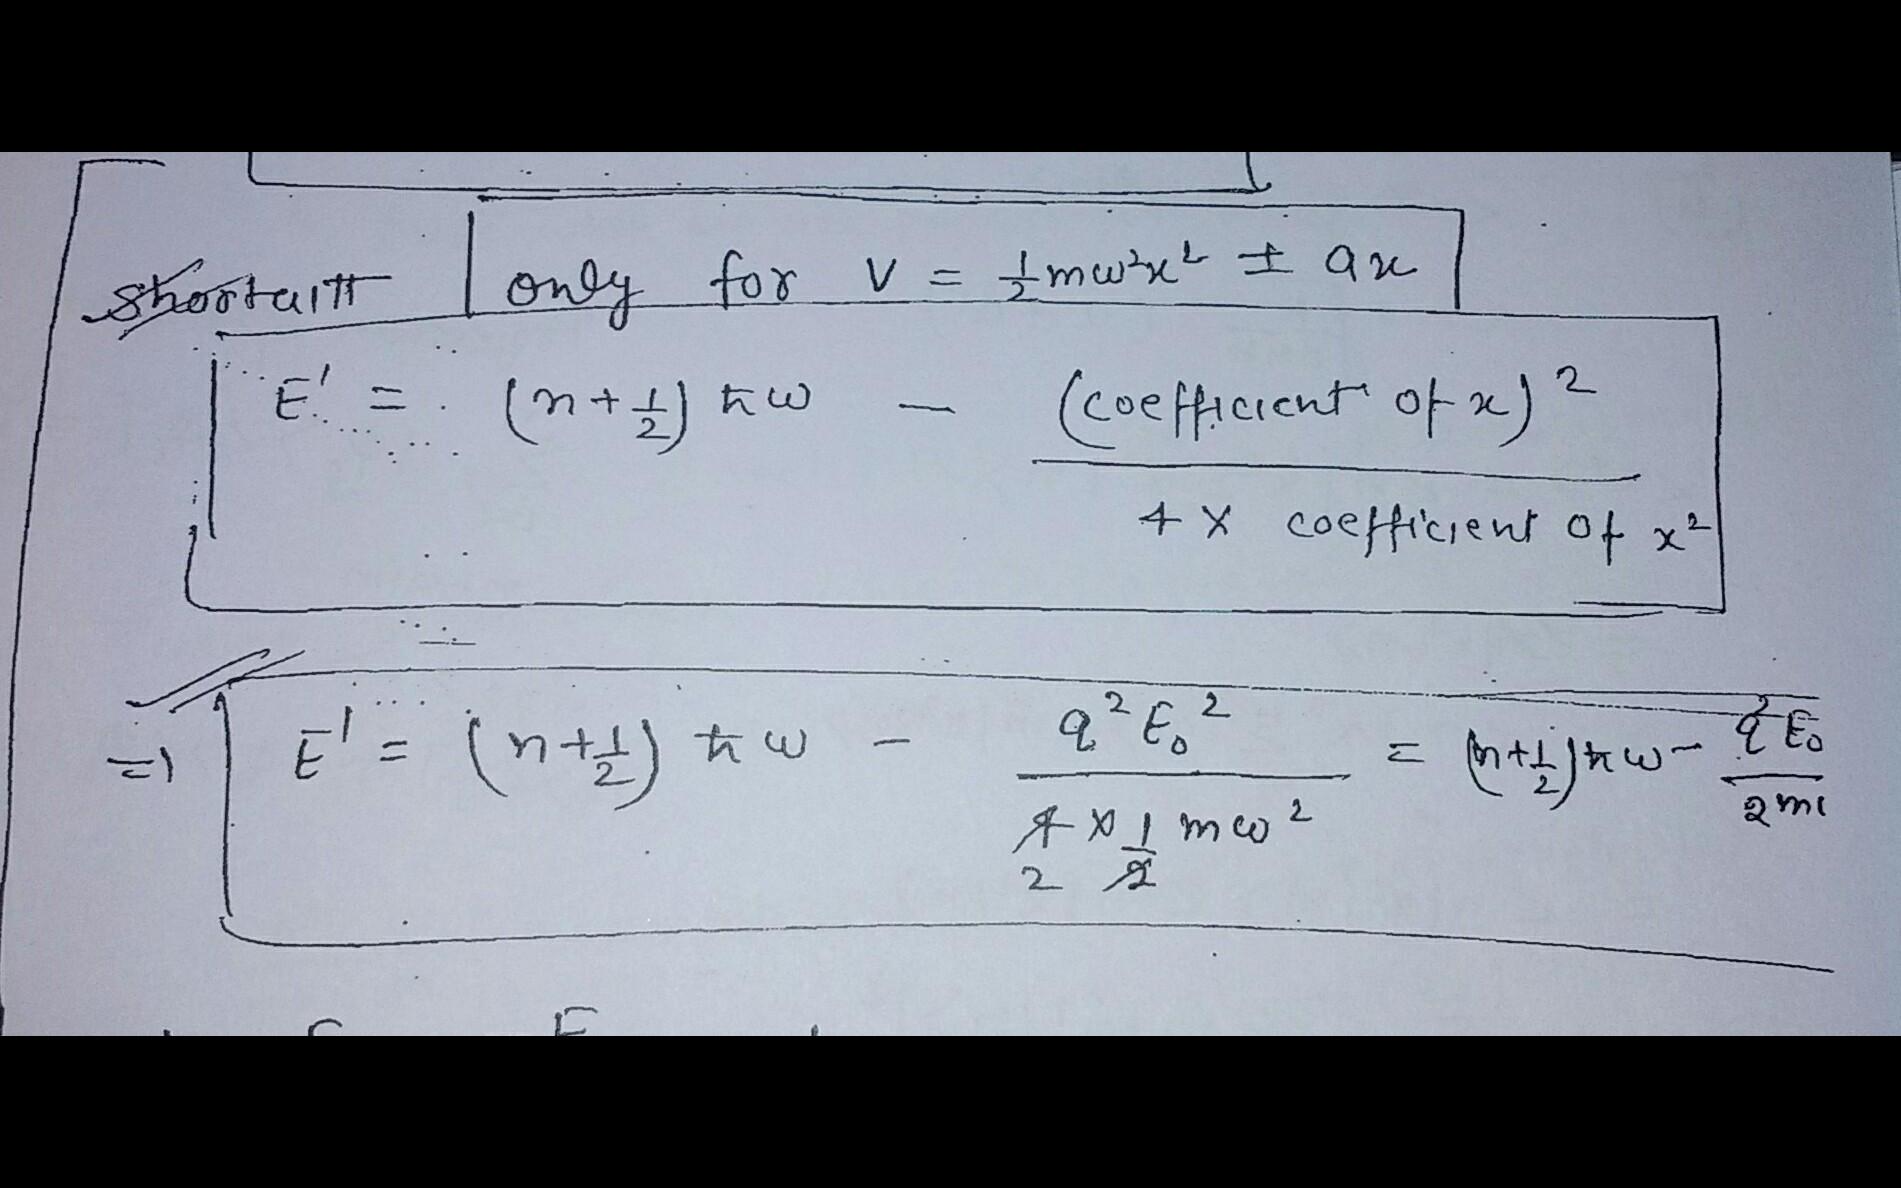 shortcut
only for V = ½mω²x² ± ax
E' = (n + ½) ħω − (coefficient of x)² / 4 × coefficient of x²
⇒ E' = (n+½) ħω − q²E₀² / 4 × ½ mω² = (n+½)ħω − q²E₀ / 2m
2 2